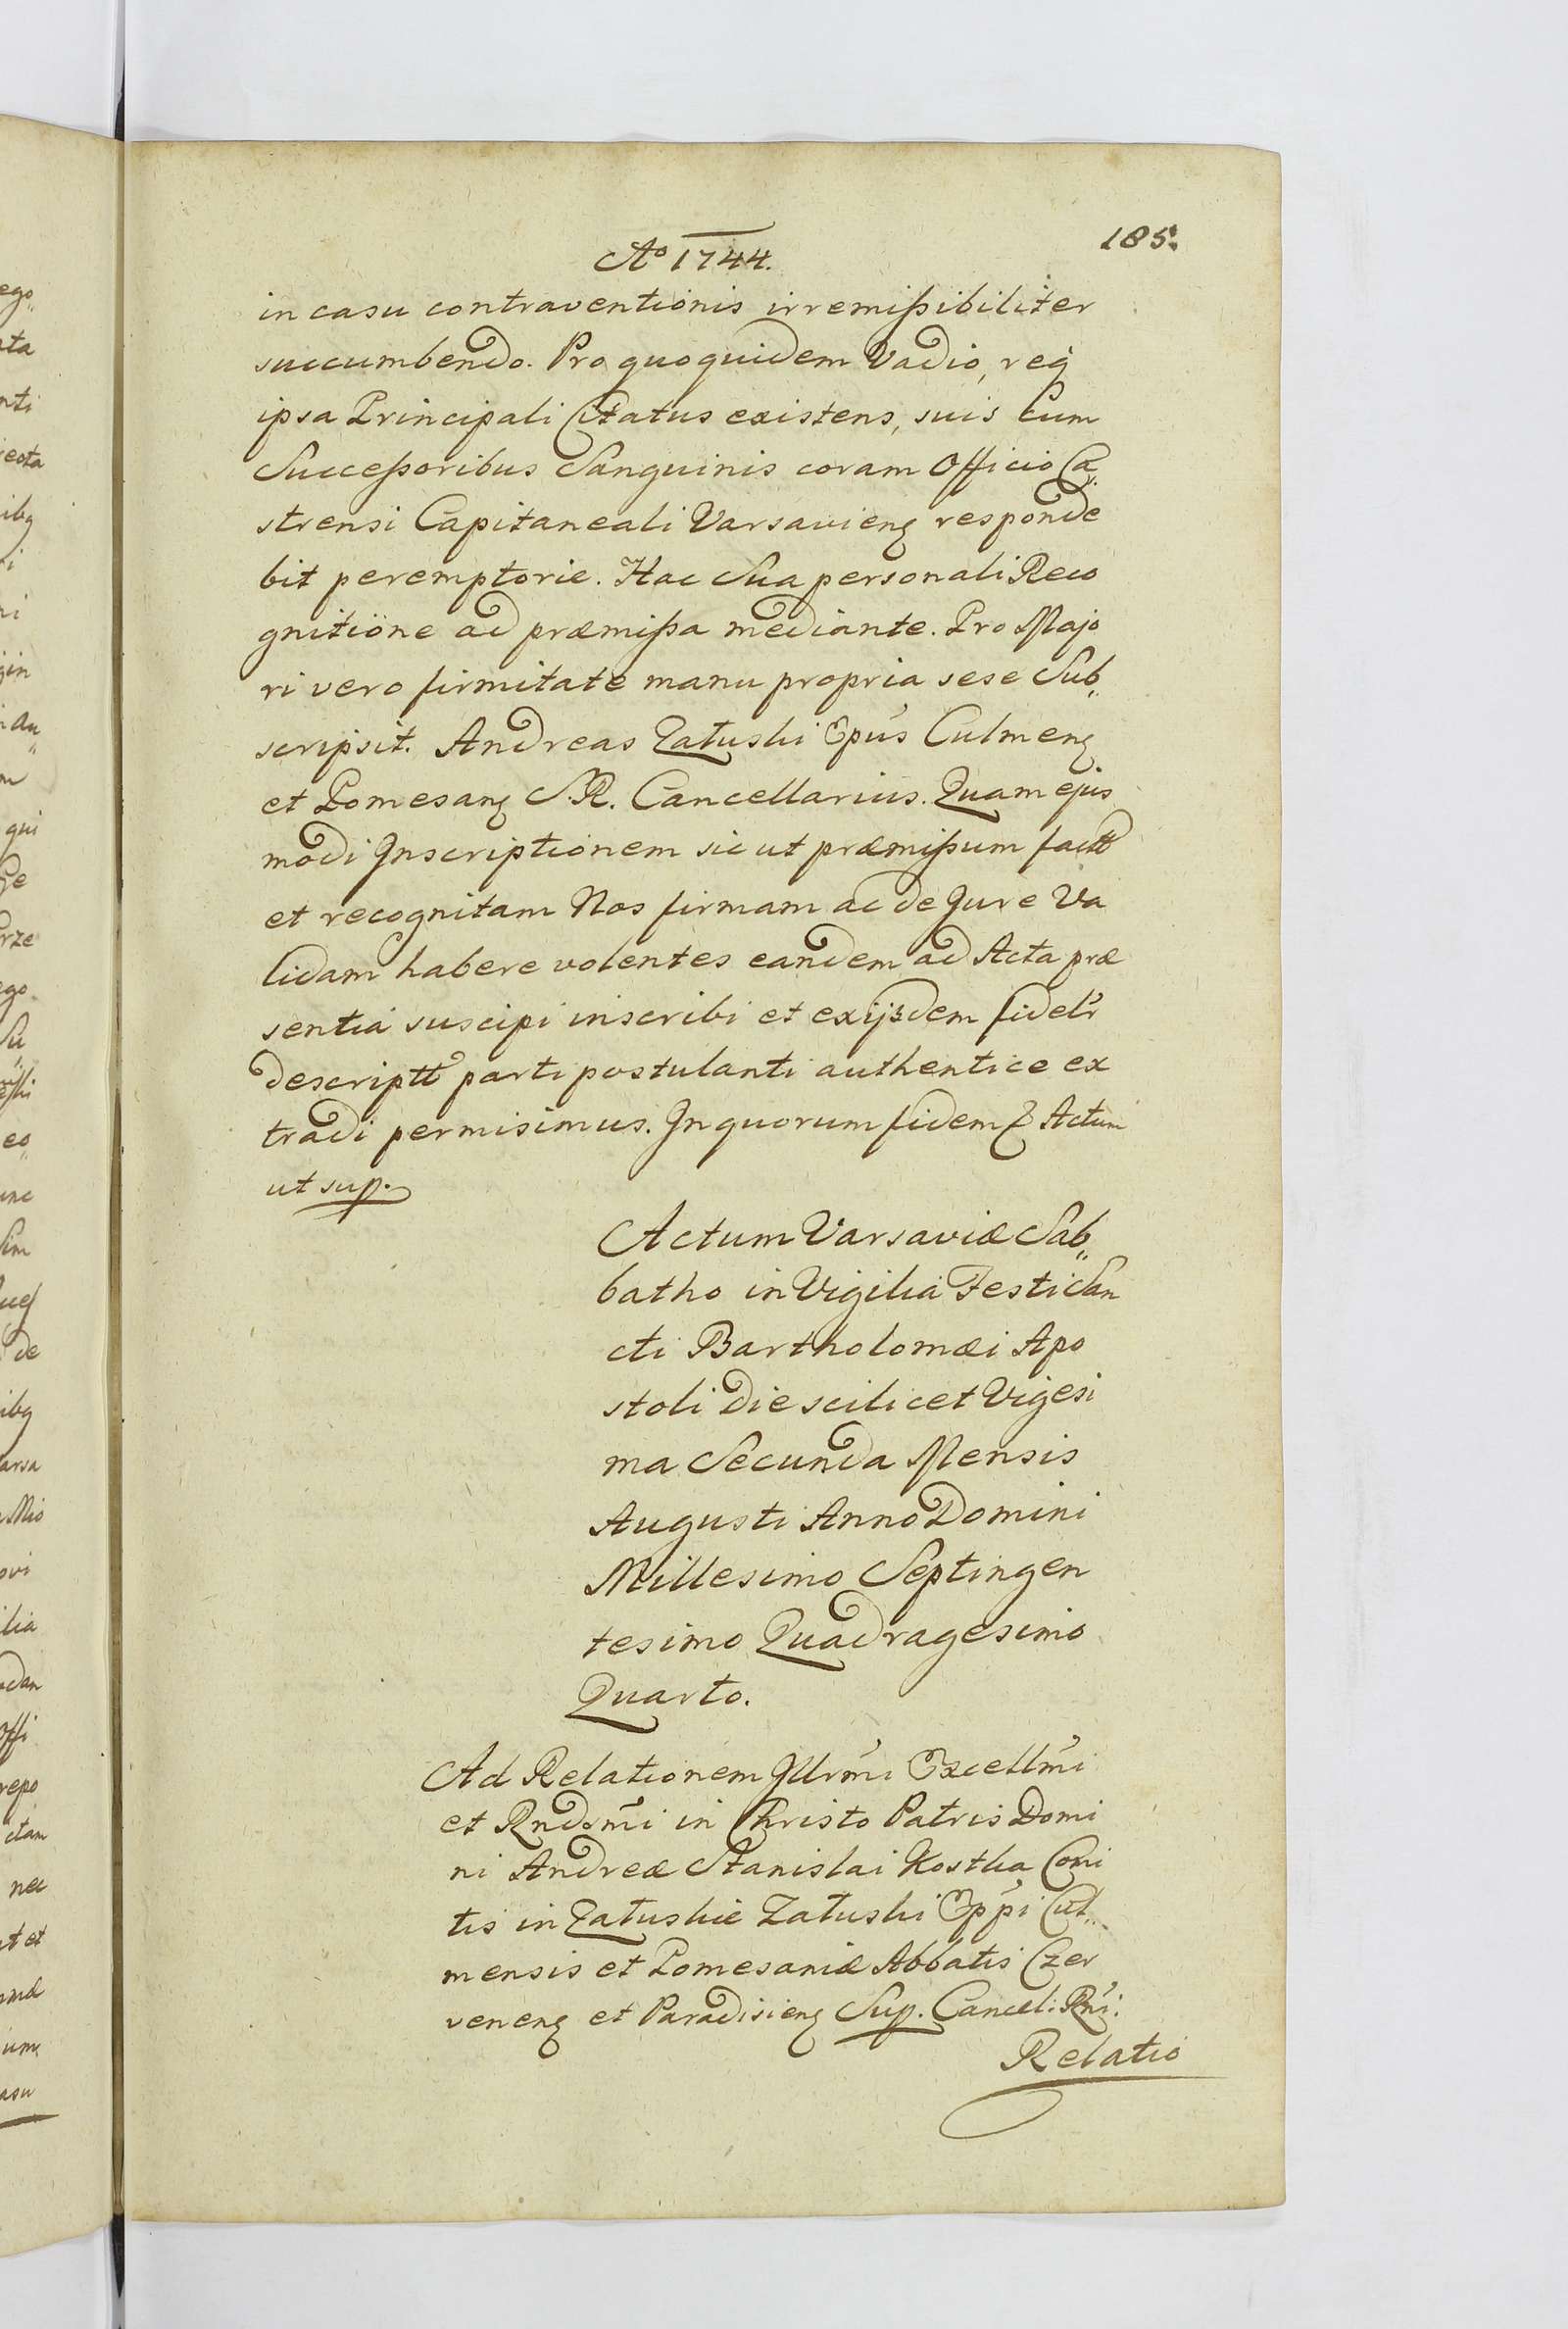 185.
Aº 1744.
in casu contraventionis irremißibiliter
succumbendo. Pro quoquidem Vadio, req
ipsa Principali Citatus existens, suis cum
Succeßoribus Sanguinis coram Officio Ca„
strensi Capitaneali Varsavienq responde
bit peremptorie. Hac Sua personali Reco
gnitione ad præmißa mediante. Pro Majo
ri vero firmitate manu propria sese Sub„
scripsit. Andreas Załuski Epus Culmenq
et Pomesanq S.R. Cancellarius. Quam ejus
modi Inscriptionem sic ut præmißum factt
et recognitam Nos firmam ac de Jure Va
lidam habere volentes eandem ad Acta præ
sentia suscipi inscribi et exijsdem fidelr
descriptt parti postulanti authentice ex
tradi permisimus. In quorum fidem Actum
ut sup.
Actum Varsaviæ Sab„
batho in Vigilia Festi San
cti Bartholomæi Apo
stoli Die scilicet Vigesi
ma Secunda Mensis
Augusti Anno Domini
Millesimo Septingen
tesimo Quadragesimo
Quarto.
Ad Relationem Illrmi Excellmi
et Rndsmi in Christo Patris Domi
ni Andreæ Stanislai Kostka Comi
tis in Załuskie Załuski Eppi Cul„
mensis et Pomesaniæ Abbatis Czer
venenq et Paradisienq Sup. Cancel: Rni:
Relatio